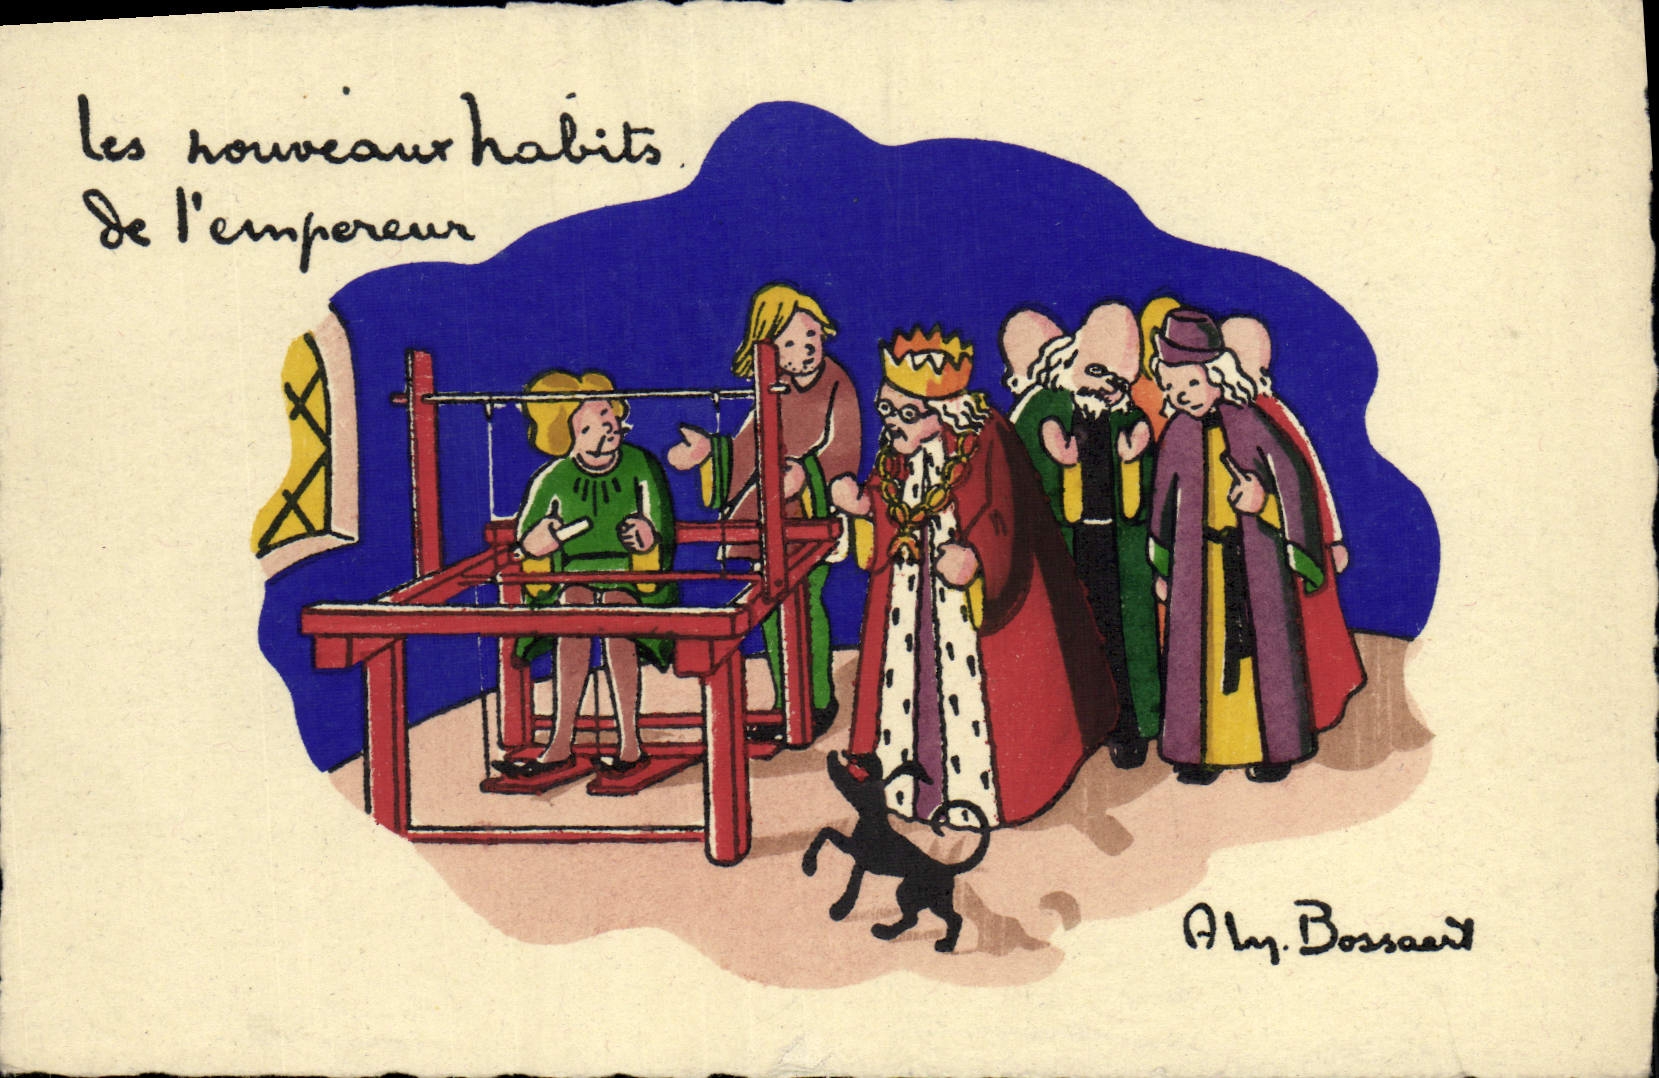 les nouveaux habits
de l'empereur
Aly. Bossaert